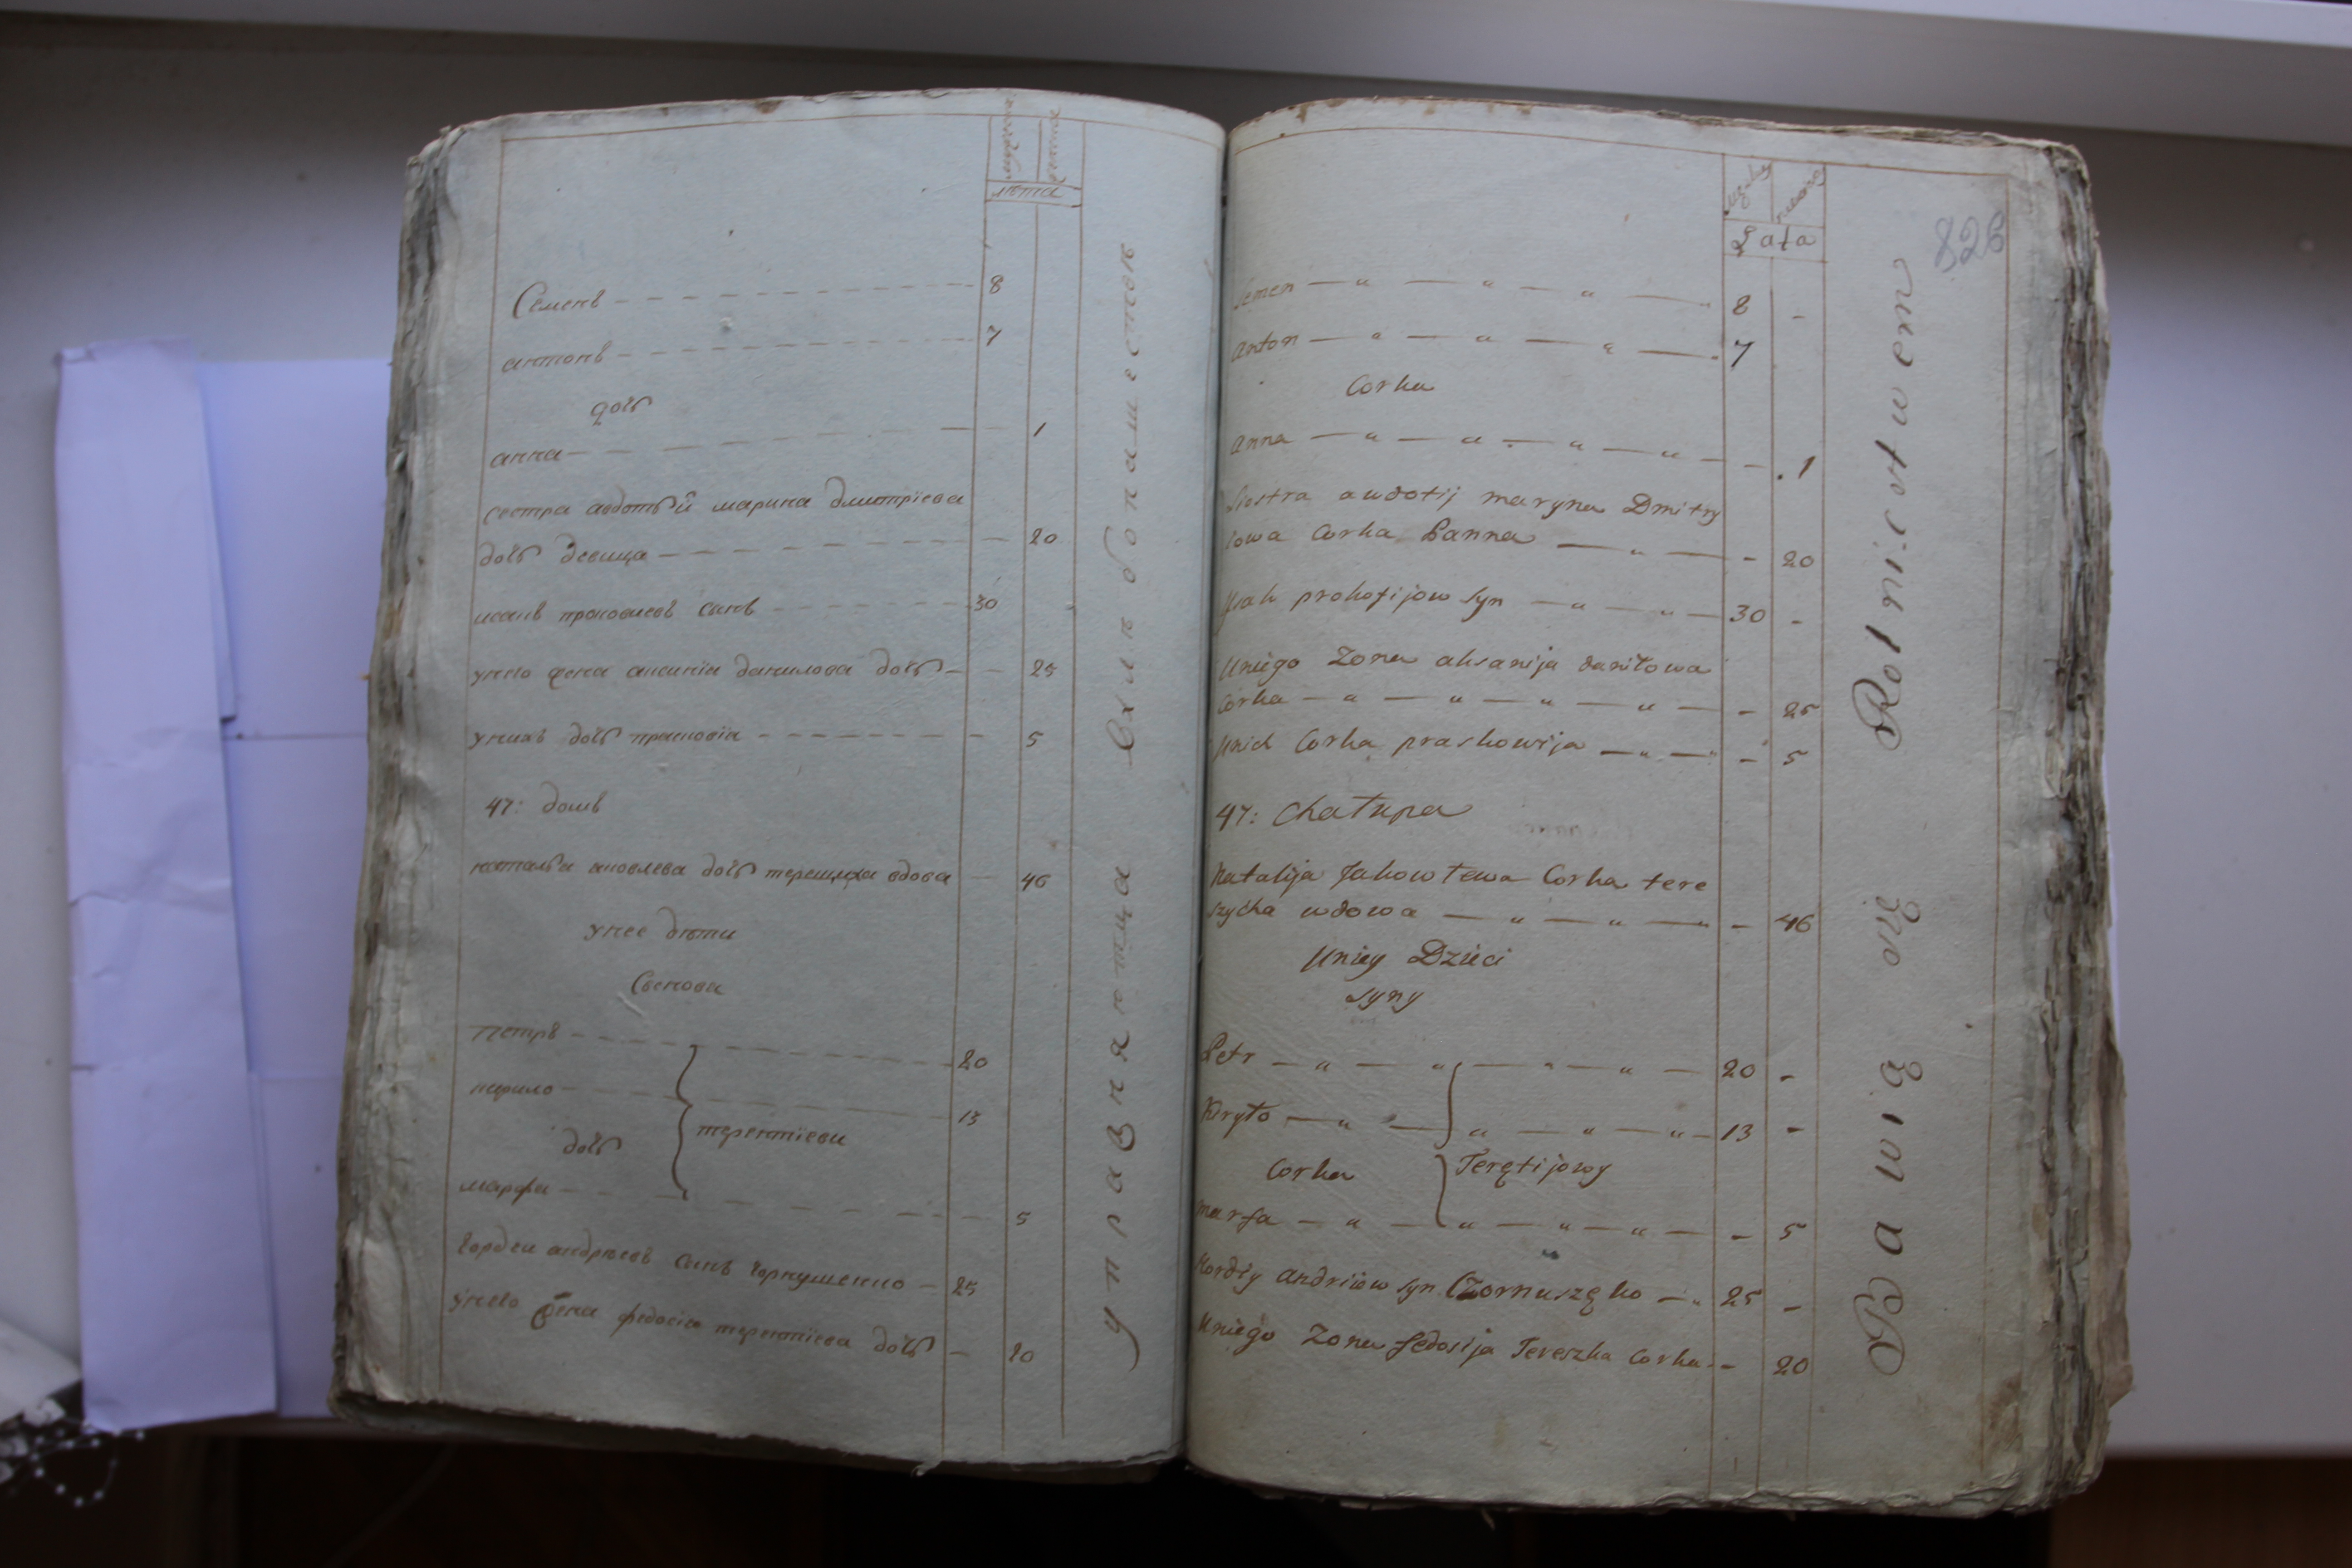 лѣта
Семенъ 8
антонъ 7
дочь
анна 1
сестра авдотьи марина дмитріева
дочь девица 20
исакъ прокофиевъ сынъ 30
унего жена аксинія данилова дочь 25
унихъ дочь прасковія 5
47: домъ
наталья яковлева дочь терешиха вдова 46
унее дѣти
Сынова
петръ 20
кирило 13
дочь
терентіеви
марфа 5
гордеи андрѣевъ сынъ чорнушенко 25
унего жена федосія терентіева дочь 20
Łata
826
Semen — „ — „ — „ — 8 -
Anton — „ — „ — „ — 7
Corka
anna — „ — „ — „ — „ — - 1
Siostra awdotij maryna Dmitry
iowa Corka Panna — „ — - 20
Ysak prokofijow Syn — „ — „ — 30 -
Uniego Zona aksanija daniłowa
Corka — „ — „ — „ — „ — - 25
Unich Corka praskowija — „ — - 5
47: Chałupa
Natalija Jakowłewa Corka tere
szycha wdowa — „ — „ — - 46
Uniey Dzieci
Syny
Petr — „ — „ — „ — „ — 20 -
Kiryło — „ — „ — „ — „ — 13 -
Corka
Teretijowy
marfa — „ — „ — „ — „ — - 5
Hordiy andriiow syn Czornuszęko — „ 25 -
Uniego Zona fedosija Tereszka Corka - 20
Bawią się Rolnictwem